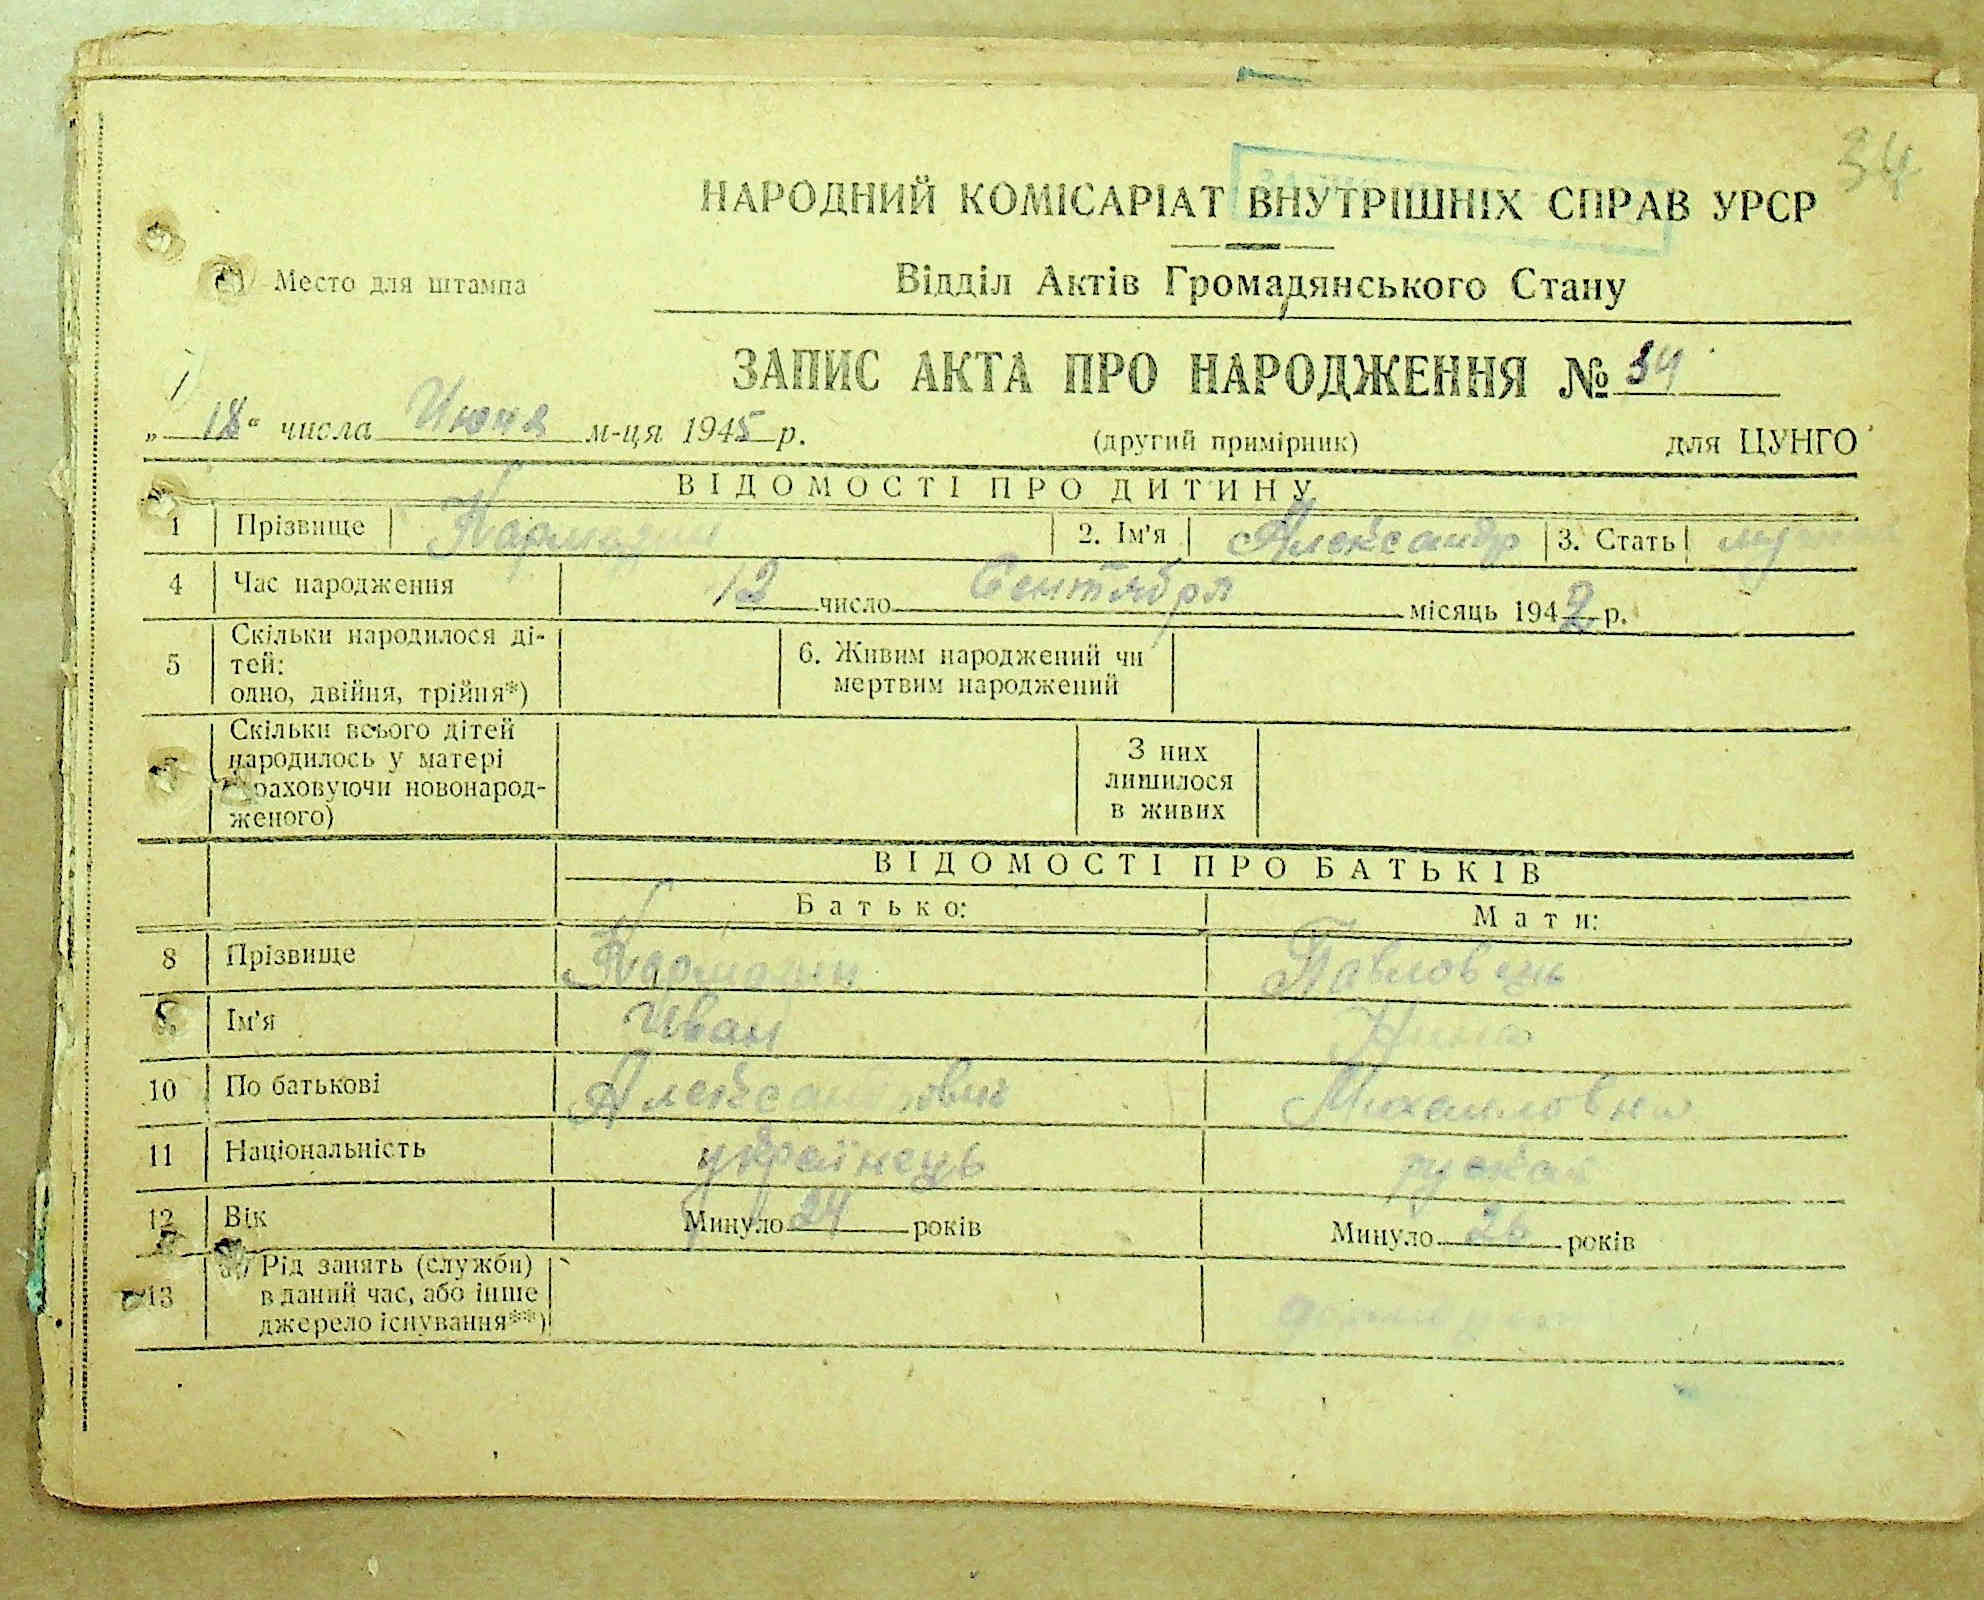 34
НАРОДНИЙ КОМІСАРІАТ ВНУТРІШНІХ СПРАВ УРСР
Место для штампа
Відділ Актів Громадянського Стану
ЗАПИС АКТА ПРО НАРОДЖЕННЯ № 34
„18" числа Июня м-ця 1945 р. (другий примірник) для ЦУНГО
ВІДОМОСТІ ПРО ДИТИНУ
1 Прізвище Кармазин 2. Ім'я Александр 3. Стать
4 Час народження 12 число Сентября місяць 1942 р.
5 Скільки народилося ді-
тей:
одно, двійня, трійня*)
6. Живим народжений чи
мертвим народжений
Скільки всього дітей
народилось у матері
раховуючи новонарод-
женого)
З них
лишилося
в живих
ВІДОМОСТІ ПРО БАТЬКІВ
Батько: Мати:
8 Прізвище Кармазин Павловець
Ім'я Иван Нина
10 По батькові Александрович Михайловна
11 Національність українець руская
12 Вік Минуло 24 років Минуло 26 років
13 Рід занять (служби)
в даний час, або інше
джерело існування**)